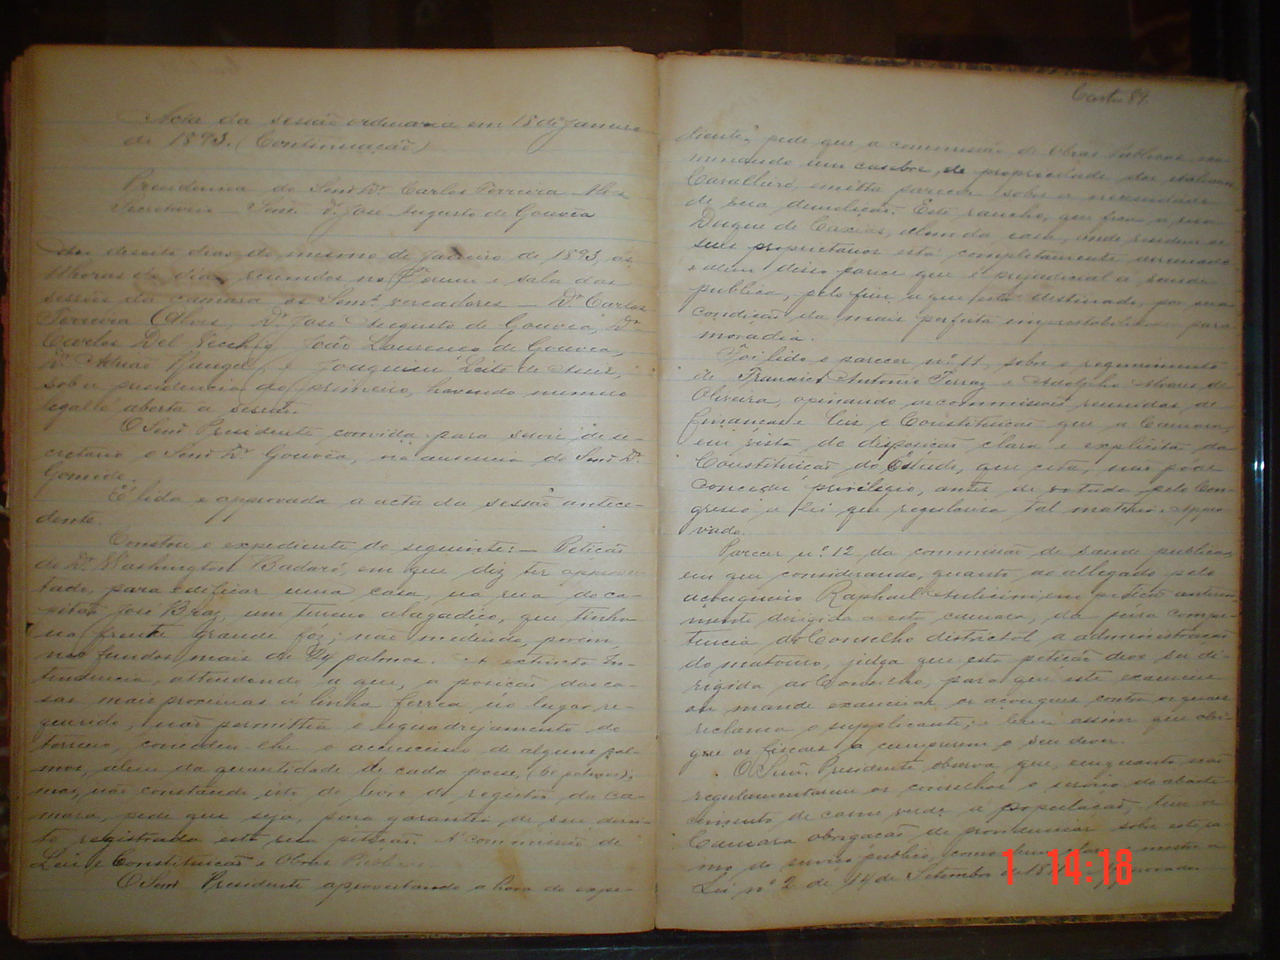 Acta da sessão ordinaria em 18 de Janeiro
de 1893. (Continuação)
Presidencia do Senr. Dr. Carlos Ferreira Alves
Secretario - Senr. Dr. José Augusto de Gouvêa
Aos desoito dias do mesmo de Janeiro de 1893, ás
horas do dia, reunidos no Forum e sala das
sessões da camara os Senrs. vereadores - Dr. Carlos
Ferreira Alves, Dr. José Augusto de Gouvêa, Dr.
Carlos Del João Lourenço de Gouvêa,
Dr. Adrião Rangel, e Joaquim Leite de
sob a presidencia do primeiro, havendo numero
legal é aberta a sessão.
O Senr. Presidente convida para servir de se-
cretario o Senr. Dr. Gouvêa, na ausencia do Senr. Dr.
Gomide.
É lida e approvada a acta da sessão antece-
dente.
Constou o expediente do seguinte: - Petição
do Dr. Washington Badaró, em que diz ter aprovei-
tado, para edificar uma casa, na rua do ca-
pitão José Braz, um terreno alagadiço, que tinha
na frente grande foz; não medindo, porém,
nos fundos mais de 24 palmos. A extincta In-
tendencia, attendendo a que, a posição das ca-
sas mais proximas á linha ferrea, no lugar re-
querido, não permittia o esquadrejamento do
terreno, concedeu-lhe o accrescimo de alguns pal-
mos, alem da quantidade de cada posse, (60 palmos);
mas, não constando isto do livro de registro da Ca-
mara, pede que seja, para garantia de seu direi-
to registrada esta sua petição. A commissão de
Leis e Constituição e Obras Publicas.
O Senr. Presidente aproveitando a hora do expe-
Castro 89.
diente, pede que a commissão de Obras Publicas, exa-
minando um casebre, de propriedade dos italianos
Cavalliéri, emitta parecer sobre a necessidade
de sua demolição. Este rancho, que fica a rua
Duque de Caxias, alem da casa, onde residem os
seus proprietarios está completamente arruinado
e alem disso parece que é prejudicial a saude
publica, pelo fim a que está destinado, por sua
condição da mais perfeita imprestabilidade para
moradia.
Foi lido o parecer nº. 11, sobre o requerimento
de Francisco Antonio Ferraz e Adolpho Alvares de
Oliveira, opinando as commissões reunidas de
finanças e leis e Constituição que a Camara,
em vista de disposição clara e explicita da
Constituição do Estado, que cita, não pode
conceder privilegio, antes de votada pelo Con-
gresso a lei que regularia tal materia. Appro-
vado.
Parecer nº. 12 da commissão de saude publica
em que considerando, quanto ao allegado pelo
açougueiro Raphael em petição anterior-
mente dirigida a esta camara, da pura compe-
tencia do Conselho districtal a administração
do matouro, julga que esta petição deve ser di-
rigida ao Conselho, para que este examine
ou mande examinar os açougues contra os quaes
reclama o supplicante; e bem assim que obri-
gue os fiscaes a cumprirem o seu dever.
O Senr. Presidente observa que, enquanto não
regulamentarem os conselhos o serviço do abaste-
cimento de carne verde a população, tem a
Camara obrigação de providenciar sobre este ra-
mo de serviço publico, como bem claro mostra a
Lei nº 2 de 14 de Setembro de 18 Approvado.
1 14:18